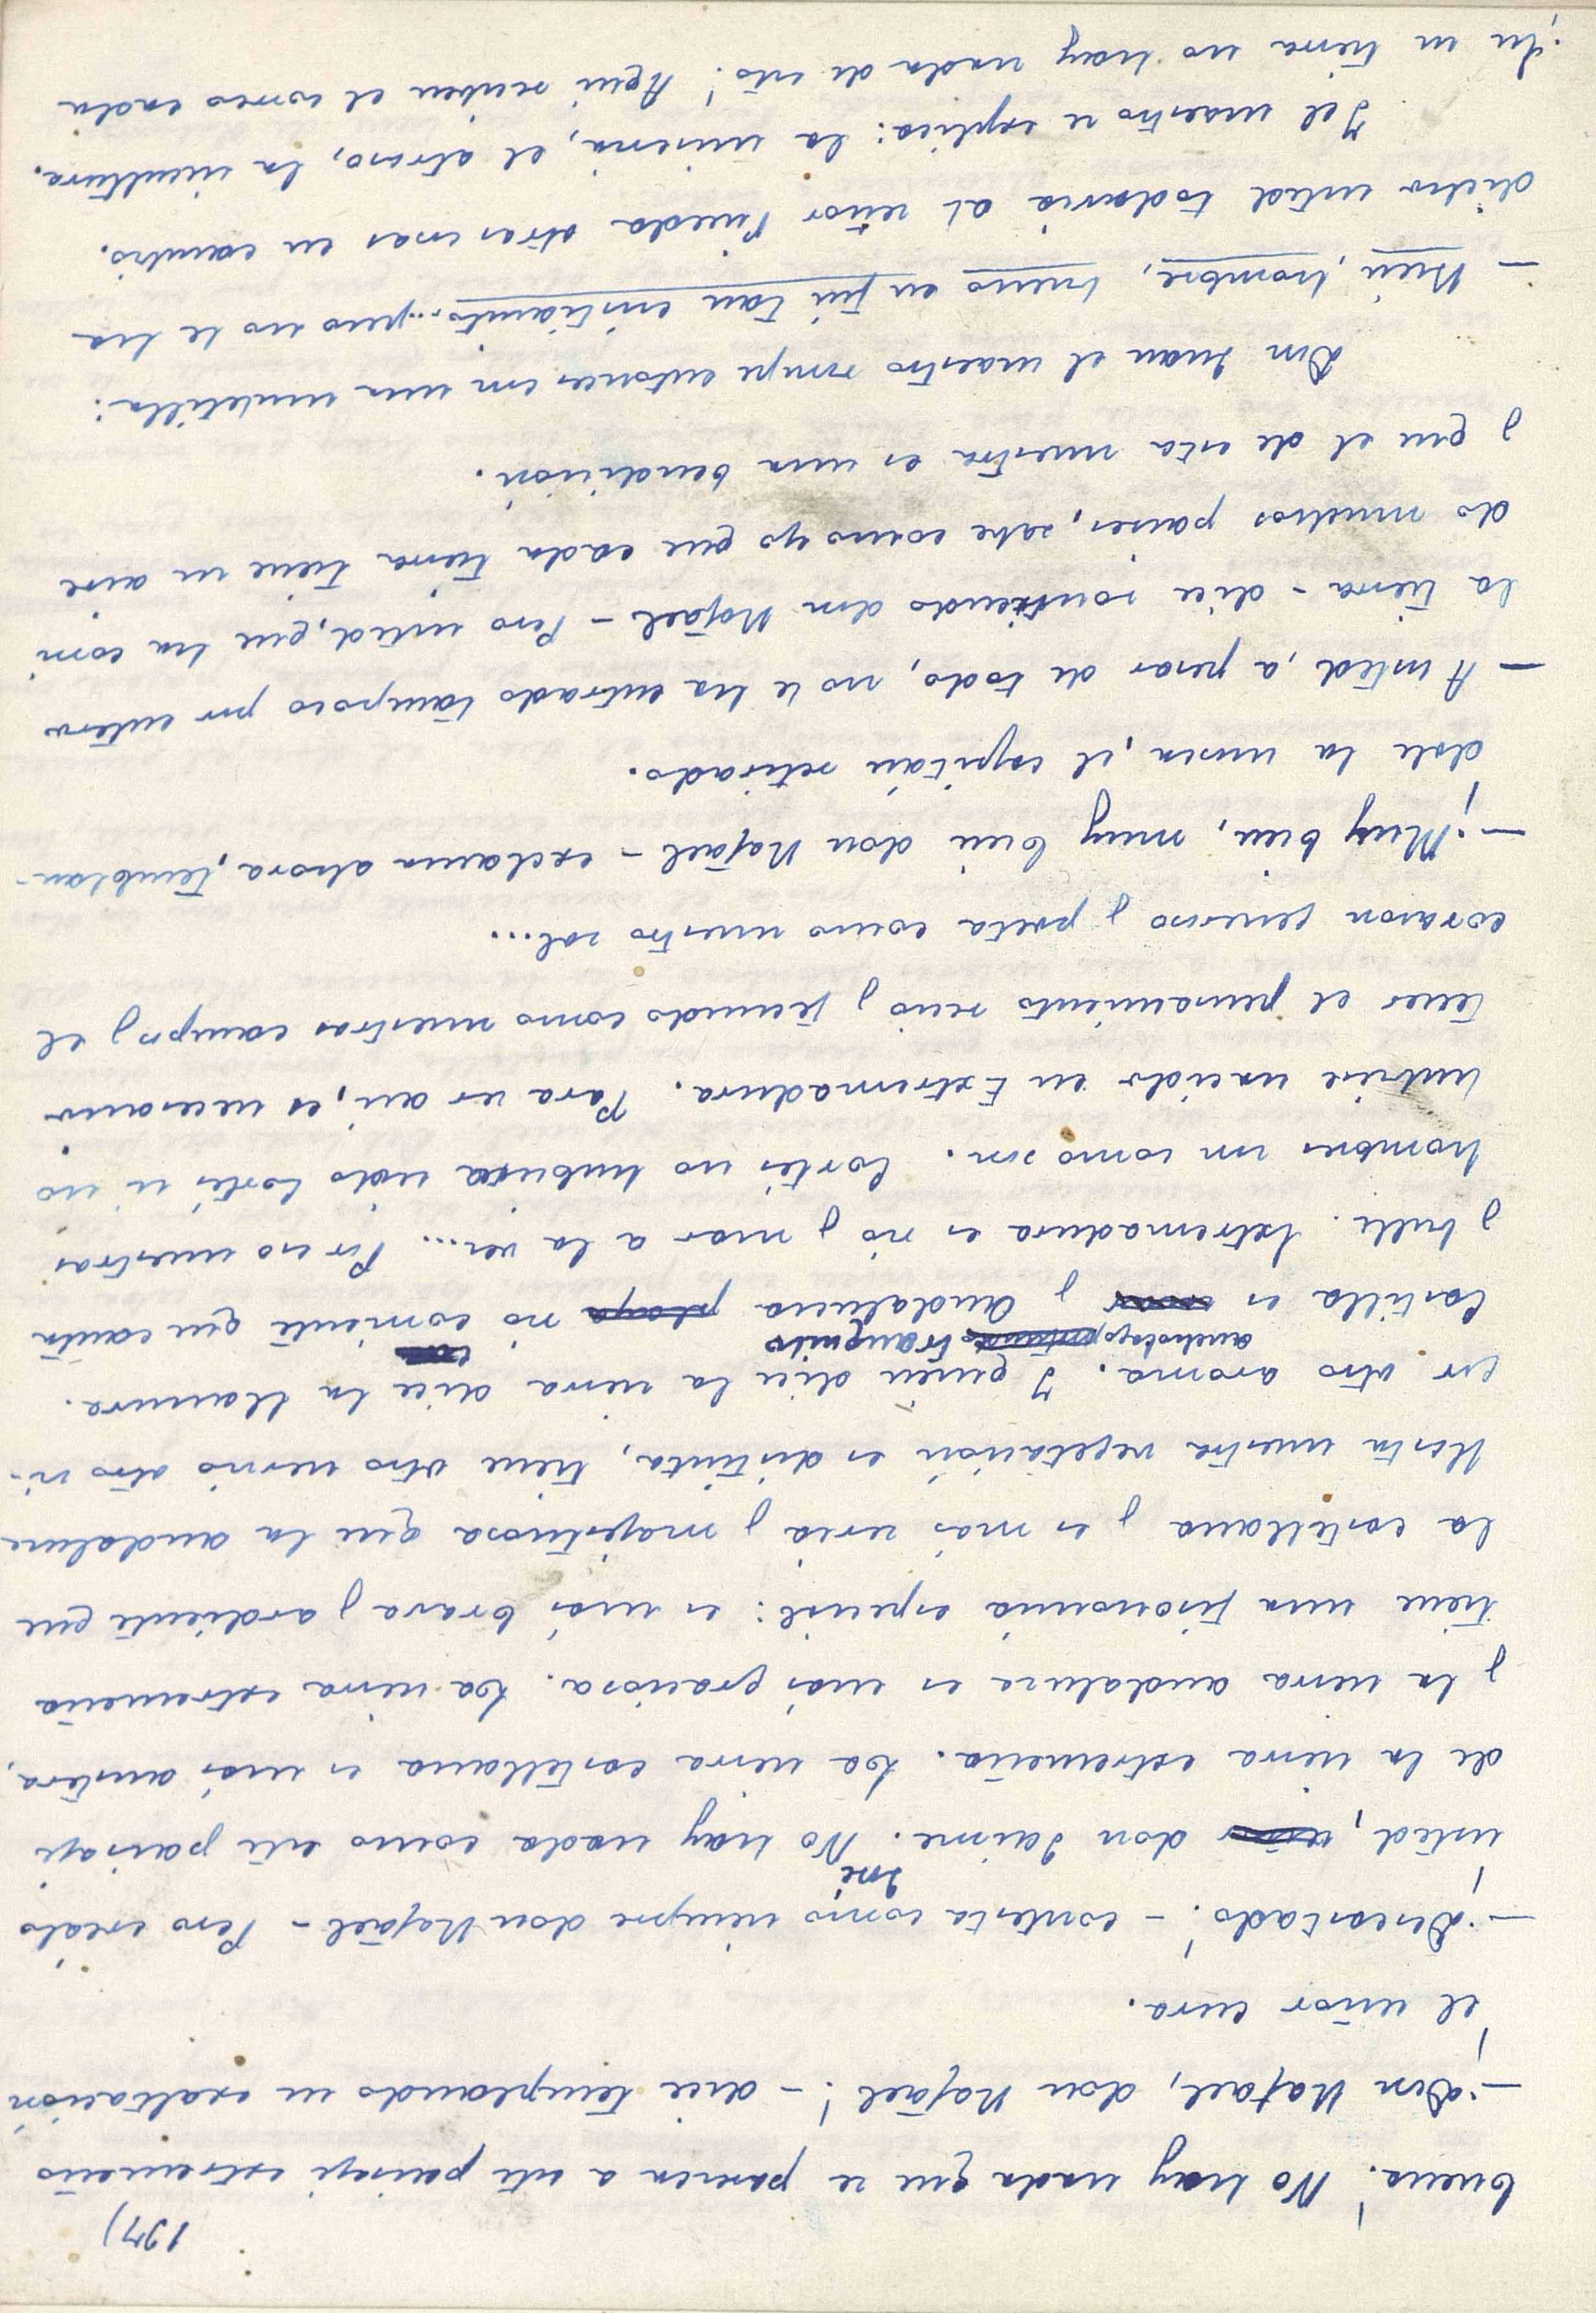 197)
buena! No hay nada que se parezca a este paisaje extremeño
— ¡Don Rafael, don Rafael! - dice templando su exaltación
el señor cura.
— ¡Descartado! - contesta como siempre don Rafael - Pero créalo
José
usted, don Jaime. No hay nada como este paisaje
de la sierra extremeña. La sierra castellana es más austera,
y la sierra andaluza es más graciosa. La sierra extremeña
tiene una fisonomía especial: es más brava y ardiente que
la castellana y es más recia y majestuosa que la andaluza
Hasta nuestra vegetación es distinta, tiene otro nervio otro vi-
gor otro aroma. Y quien dice la sierra dice la llanura.
ancholago tranquilo
Castilla es mar y Andalucía playa río corriente que canta
y bulle. Extremadura es río y mar a la vez... Por eso nuestros
hombres son como son. Cortés no hubiera sido Cortés si no
hubiese nacido en Extremadura. Para ser así, es necesario
tener el pensamiento recio y fecundo como nuestros campos y el
corazon generoso y poeta como nuestro sol...
— ¡Muy bien, muy bien don Rafael - exclama ahora, temblan-
dole la nuez, el capitán retirado.
— A usted, a pesar de todo, no le ha entrado tampoco por entero
la tierra - dice sonriendo don Rafael - Pero usted, que ha corri
do muchos paises, sabe como yo que cada tierra tiene su aire
y que el de esta nuestra es una bendición.
Don Juan el maestro rompe entonces con una muletilla:
— Bien, hombre, bueno en fin tan cristianito... pero no le ha
dicho usted todavía al señor Pineda otras cosas en cambio.
Y el maestro se explica: la miseria, el atraso, la incultura.
¡En su tierra no hay nada de esto! Aquí reciben el correo cada